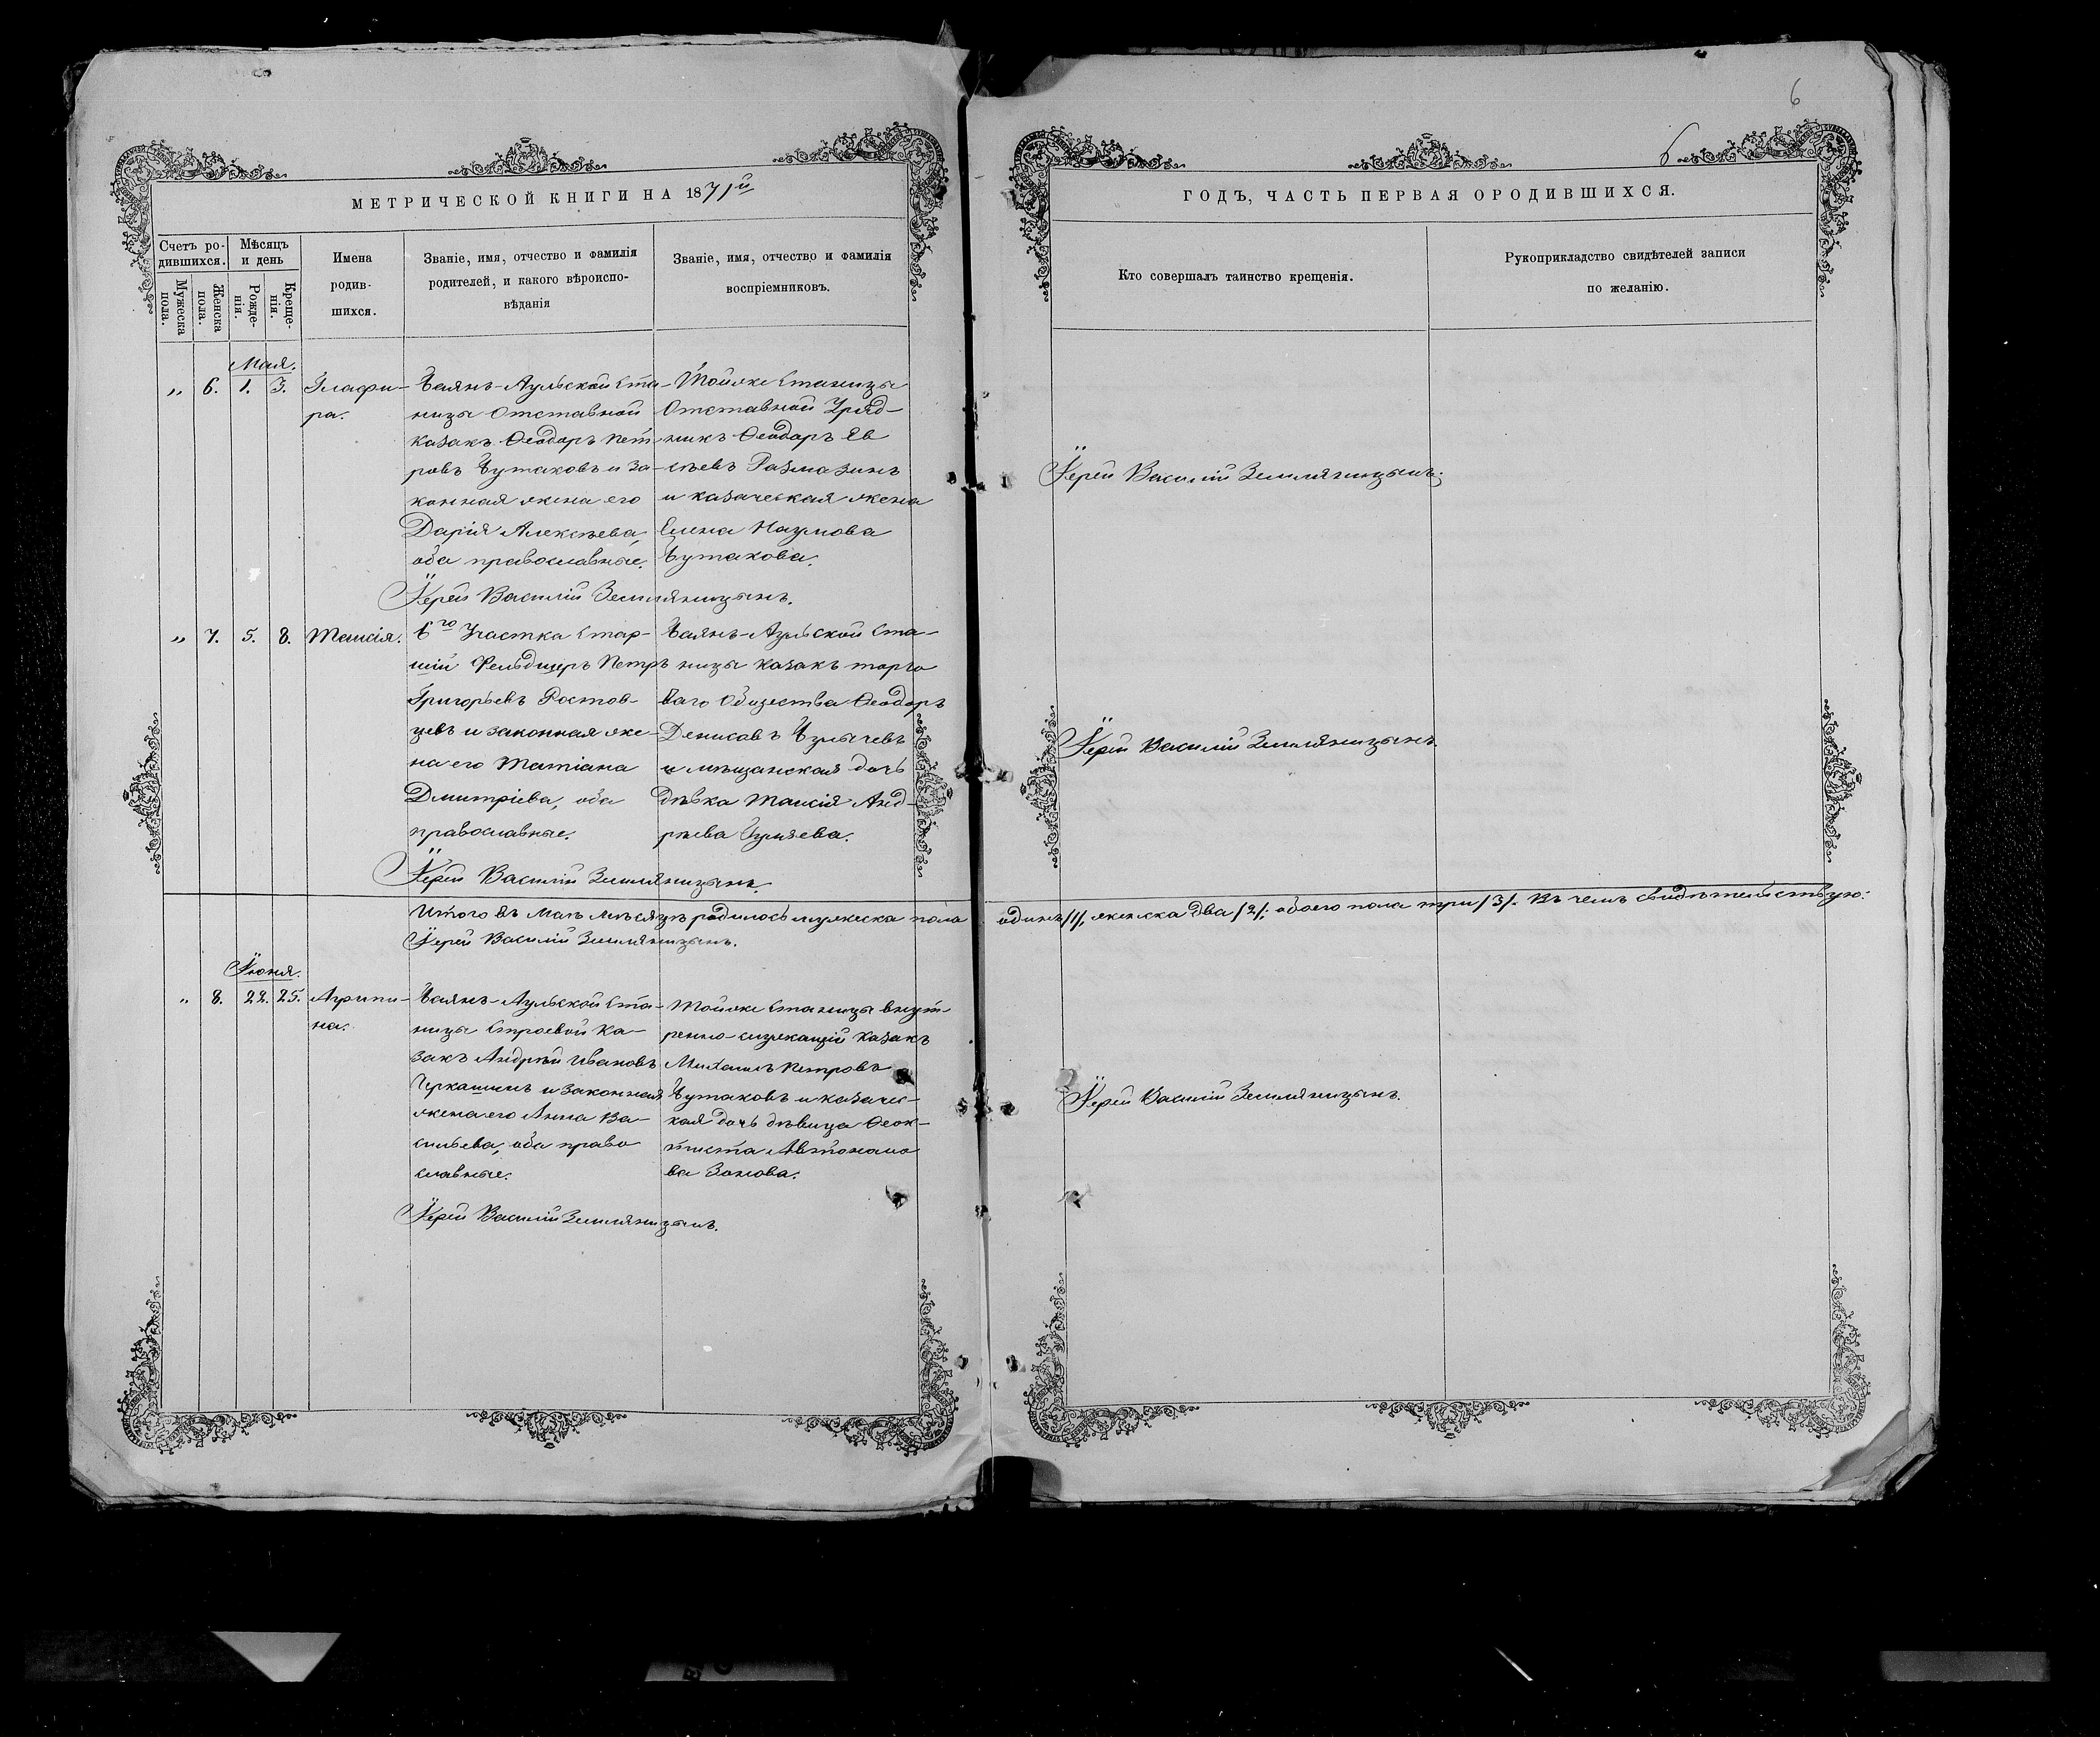 6
6
МЕТРИЧЕСКОЙ КНИГИ НА 1871й
ГОДЪ, ЧАСТЬ ПЕРВАЯ О РОДИВШИХСЯ.
Счетъ ро-
дившихся.
Мужеска
пола.
Женска
пола.
Мѣсяцъ
и день
Рожде-
нія.
Креще-
нія.
Имена
родив-
шихся.
Званіе, имя, отчество и фамилія
родителей, и какого вѣроиспо-
вѣданія
Званіе, имя, отчество и фамилія
воспріемниковъ.
Кто совершалъ таинство крещенія.
Рукоприкладство свидѣтелей записи
по желанію.
Мая.
„ 6. 1. 3.
Глафи-
ра.
Баянъ-Аульской Ста-
ницы Отставной
казакъ Ѳеодоръ Пет-
ровъ Бутаковъ и за-
конная жена его
Дарія Алексѣева,
оба православные.
Тойже Станицы
Отставной Уряд-
никъ Ѳеодоръ Ев
сѣевъ Размазинъ
и казаческая жена
Елена Наумова
Бутакова.
Іерей Василій Земляницынъ.
Іерей Василій Земляницынъ.
„ 7. 5. 8.
Таисія.
6го Участка Стар-
шій Фельдшеръ Петръ
Григорьевъ Ростов-
цевъ и законная же-
на его Татіана
Дмитріева, оба
православные.
Баянъ-Аульской Ста-
ницы казакъ торго
ваго Общества Ѳеодоръ
Денисовъ
и мѣщанская дочь
дѣвка Таисія Анд-
рѣева
Іерей Василій Земляницынъ.
Іерей Василій Земляницынъ.
Итого въ Маѣ мѣсяцѣ родилось мужеска пола одинъ /1/, женска два /2/; обоего пола три /3/. Въ чемъ свидѣтельствую:
Іерей Василій Земляницынъ.
Іюня.
„ 8. 22. 25.
Агрипи-
на.
Баянъ-Аульской Ста-
ницы Строевой Ка-
закъ Андрей Ивановъ
Черкашинъ и законная
жена его Анна Ва-
сильева, оба право
славные.
Тойже Станицы внут-
ренно-служащій казакъ
Михаилъ Петровъ
Бутаковъ и казачес-
кая дочь дѣвица Ѳеок-
тиста Автономо
ва Зонова.
Іерей Василій Земляницынъ.
Іерей Василій Земляницынъ.